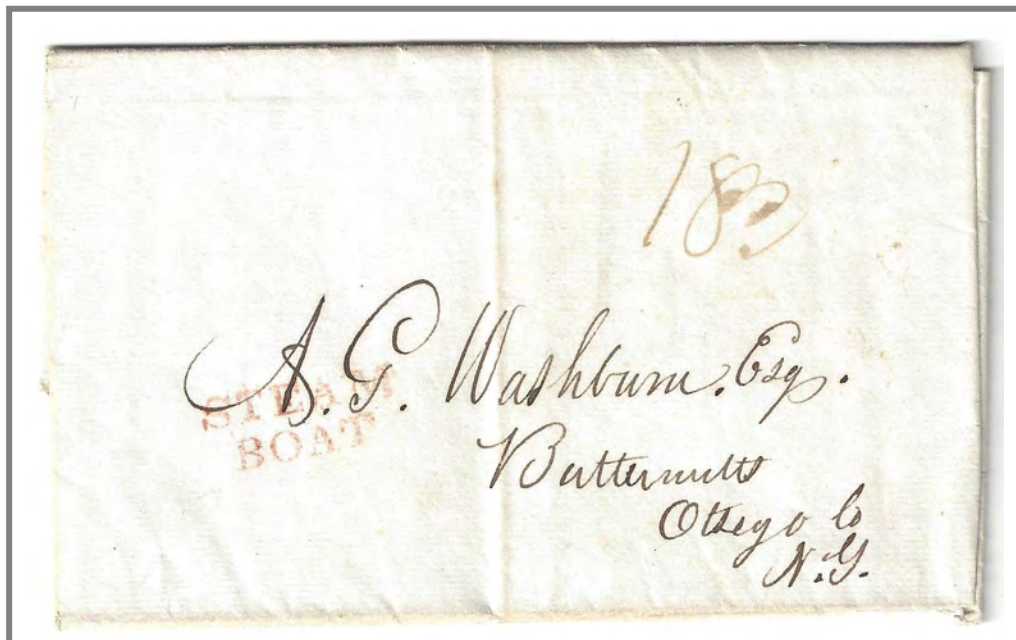 18¾
A. G. Washburn. Esq.
STEAM
BOAT
Butternutts
Otsego Co
N.Y.